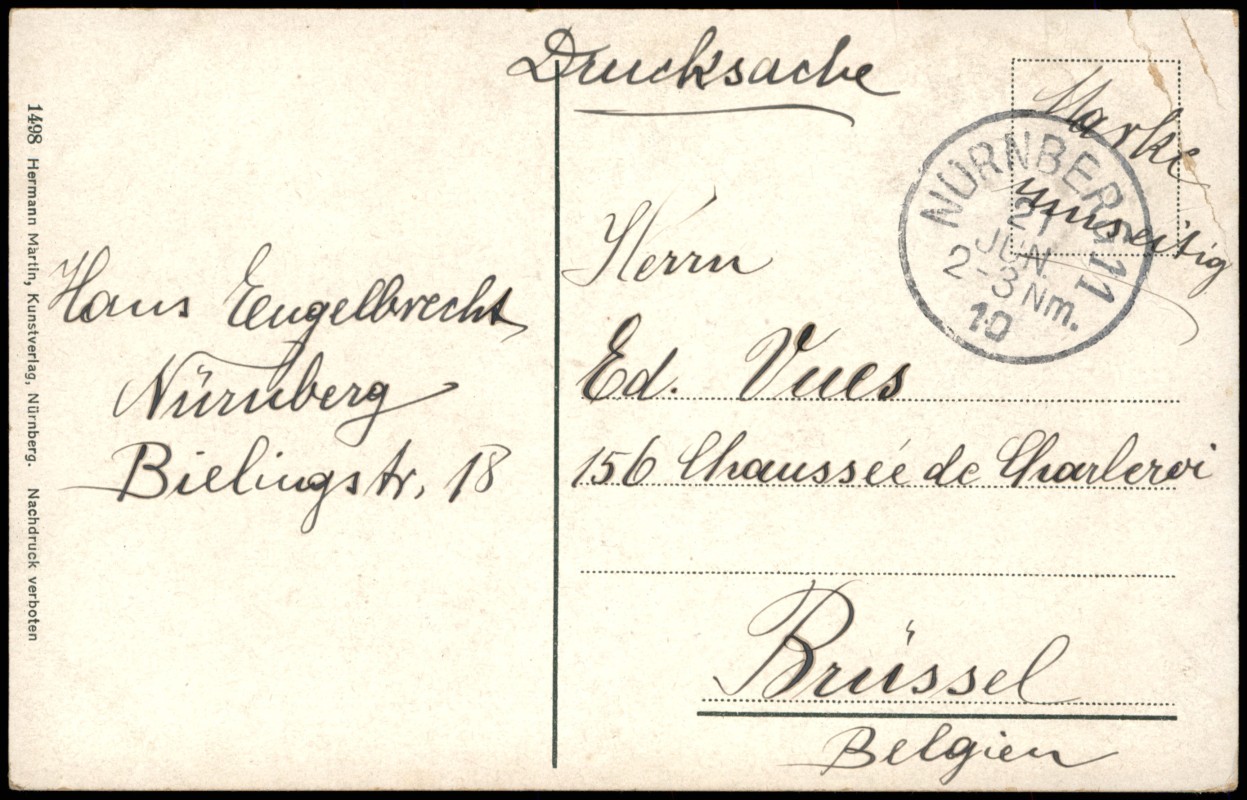 Drucksache
Marke
umseitig
NÜRNBERG 11
21
JUN
2-3 Nm.
10
Hans Engelbrecht
Nürnberg
Bielingstr. 18
Herrn
Ed. Vues
156 Chaussée de Charleroi
Brüssel
Belgien
1498 Hermann Martin, Kunstverlag, Nürnberg. Nachdruck verboten